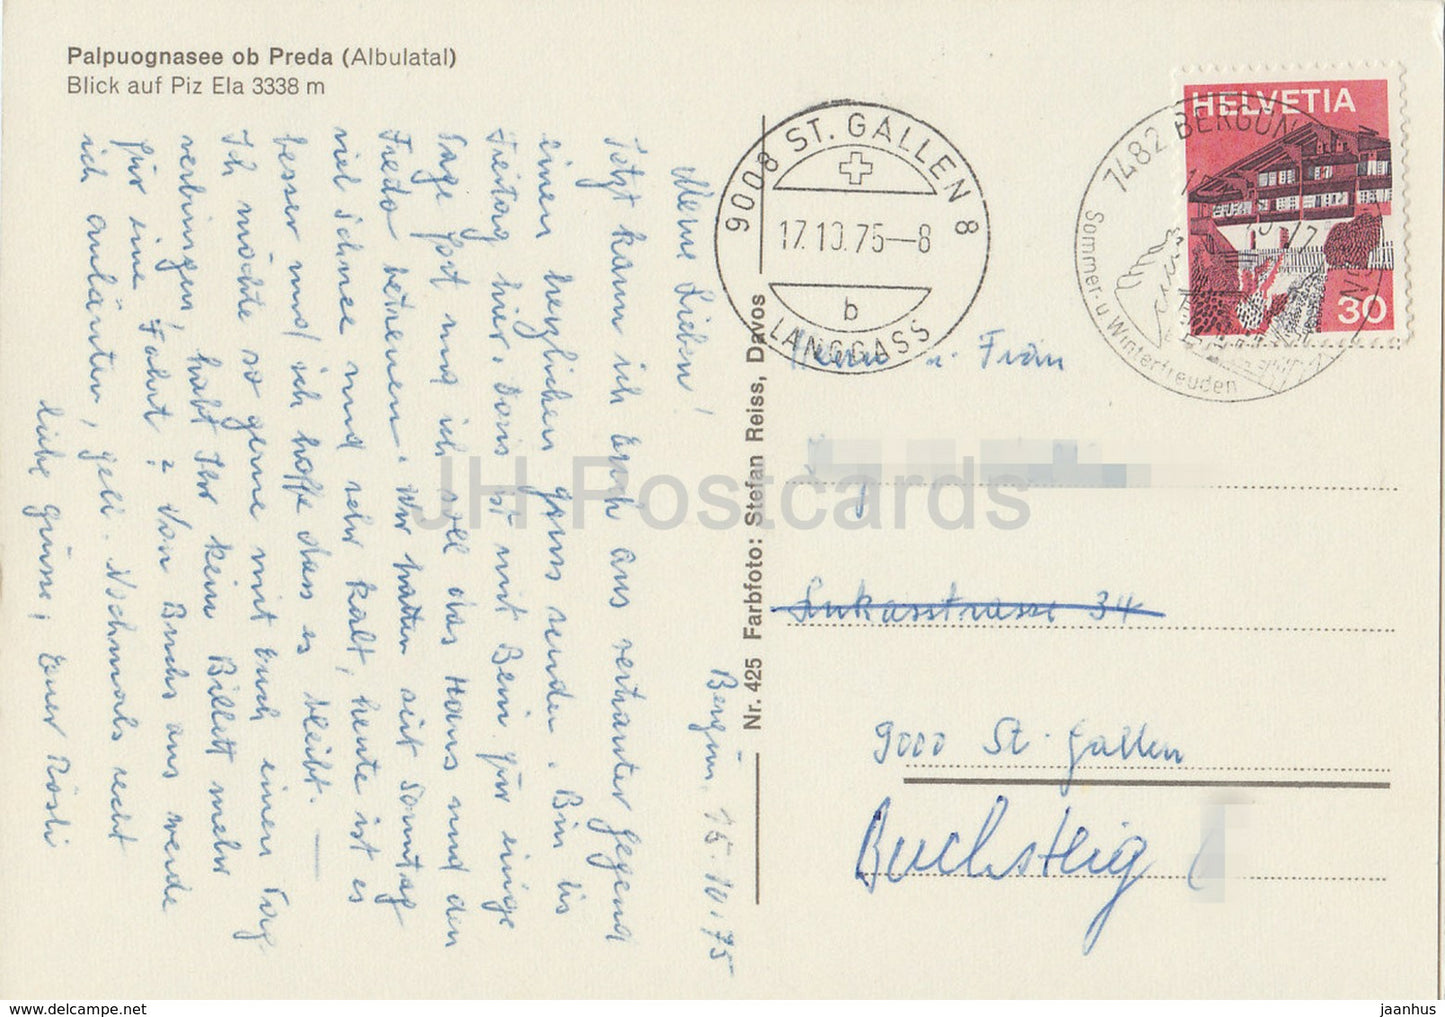 Palpuognasee ob Preda (Albulatal)
Blick auf Piz Ela 3338 m
Bergün, 15.10.75
Meine Lieben!
Jetzt kann ich Euch aus vertrauter Gegend
einen herzlichen Gruss senden. Bin bis
Freitag hier. Doris ist mit Beni für einige
Tage fort und ich soll das Haus und den
Fredo betreuen. Wir hatten seit Sonntag
viel Schnee und sehr kalt, heute ist es
besser und ich hoffe dass es bleibt. —
Ich möchte so gerne mit Euch einen Tag
verbringen, habt Ihr kein Billett mehr
für eine Fahrt? Von Buchs aus werde
ich anläuten, gell. Nochmals recht
liebe Grüsse, Euer Rösli
Nr. 425 Farbfoto: Stefan Reiss, Davos
9008 ST. GALLEN 8
17.10.75–8
b
LANGGASS
HELVETIA
30
7482 BERGÜN
Sommer- u Winterfreuden
Herrn u. Frau
Lukasstrasse 34
9000 St. Gallen
Buchsteig
JH Postcards
jaanhus